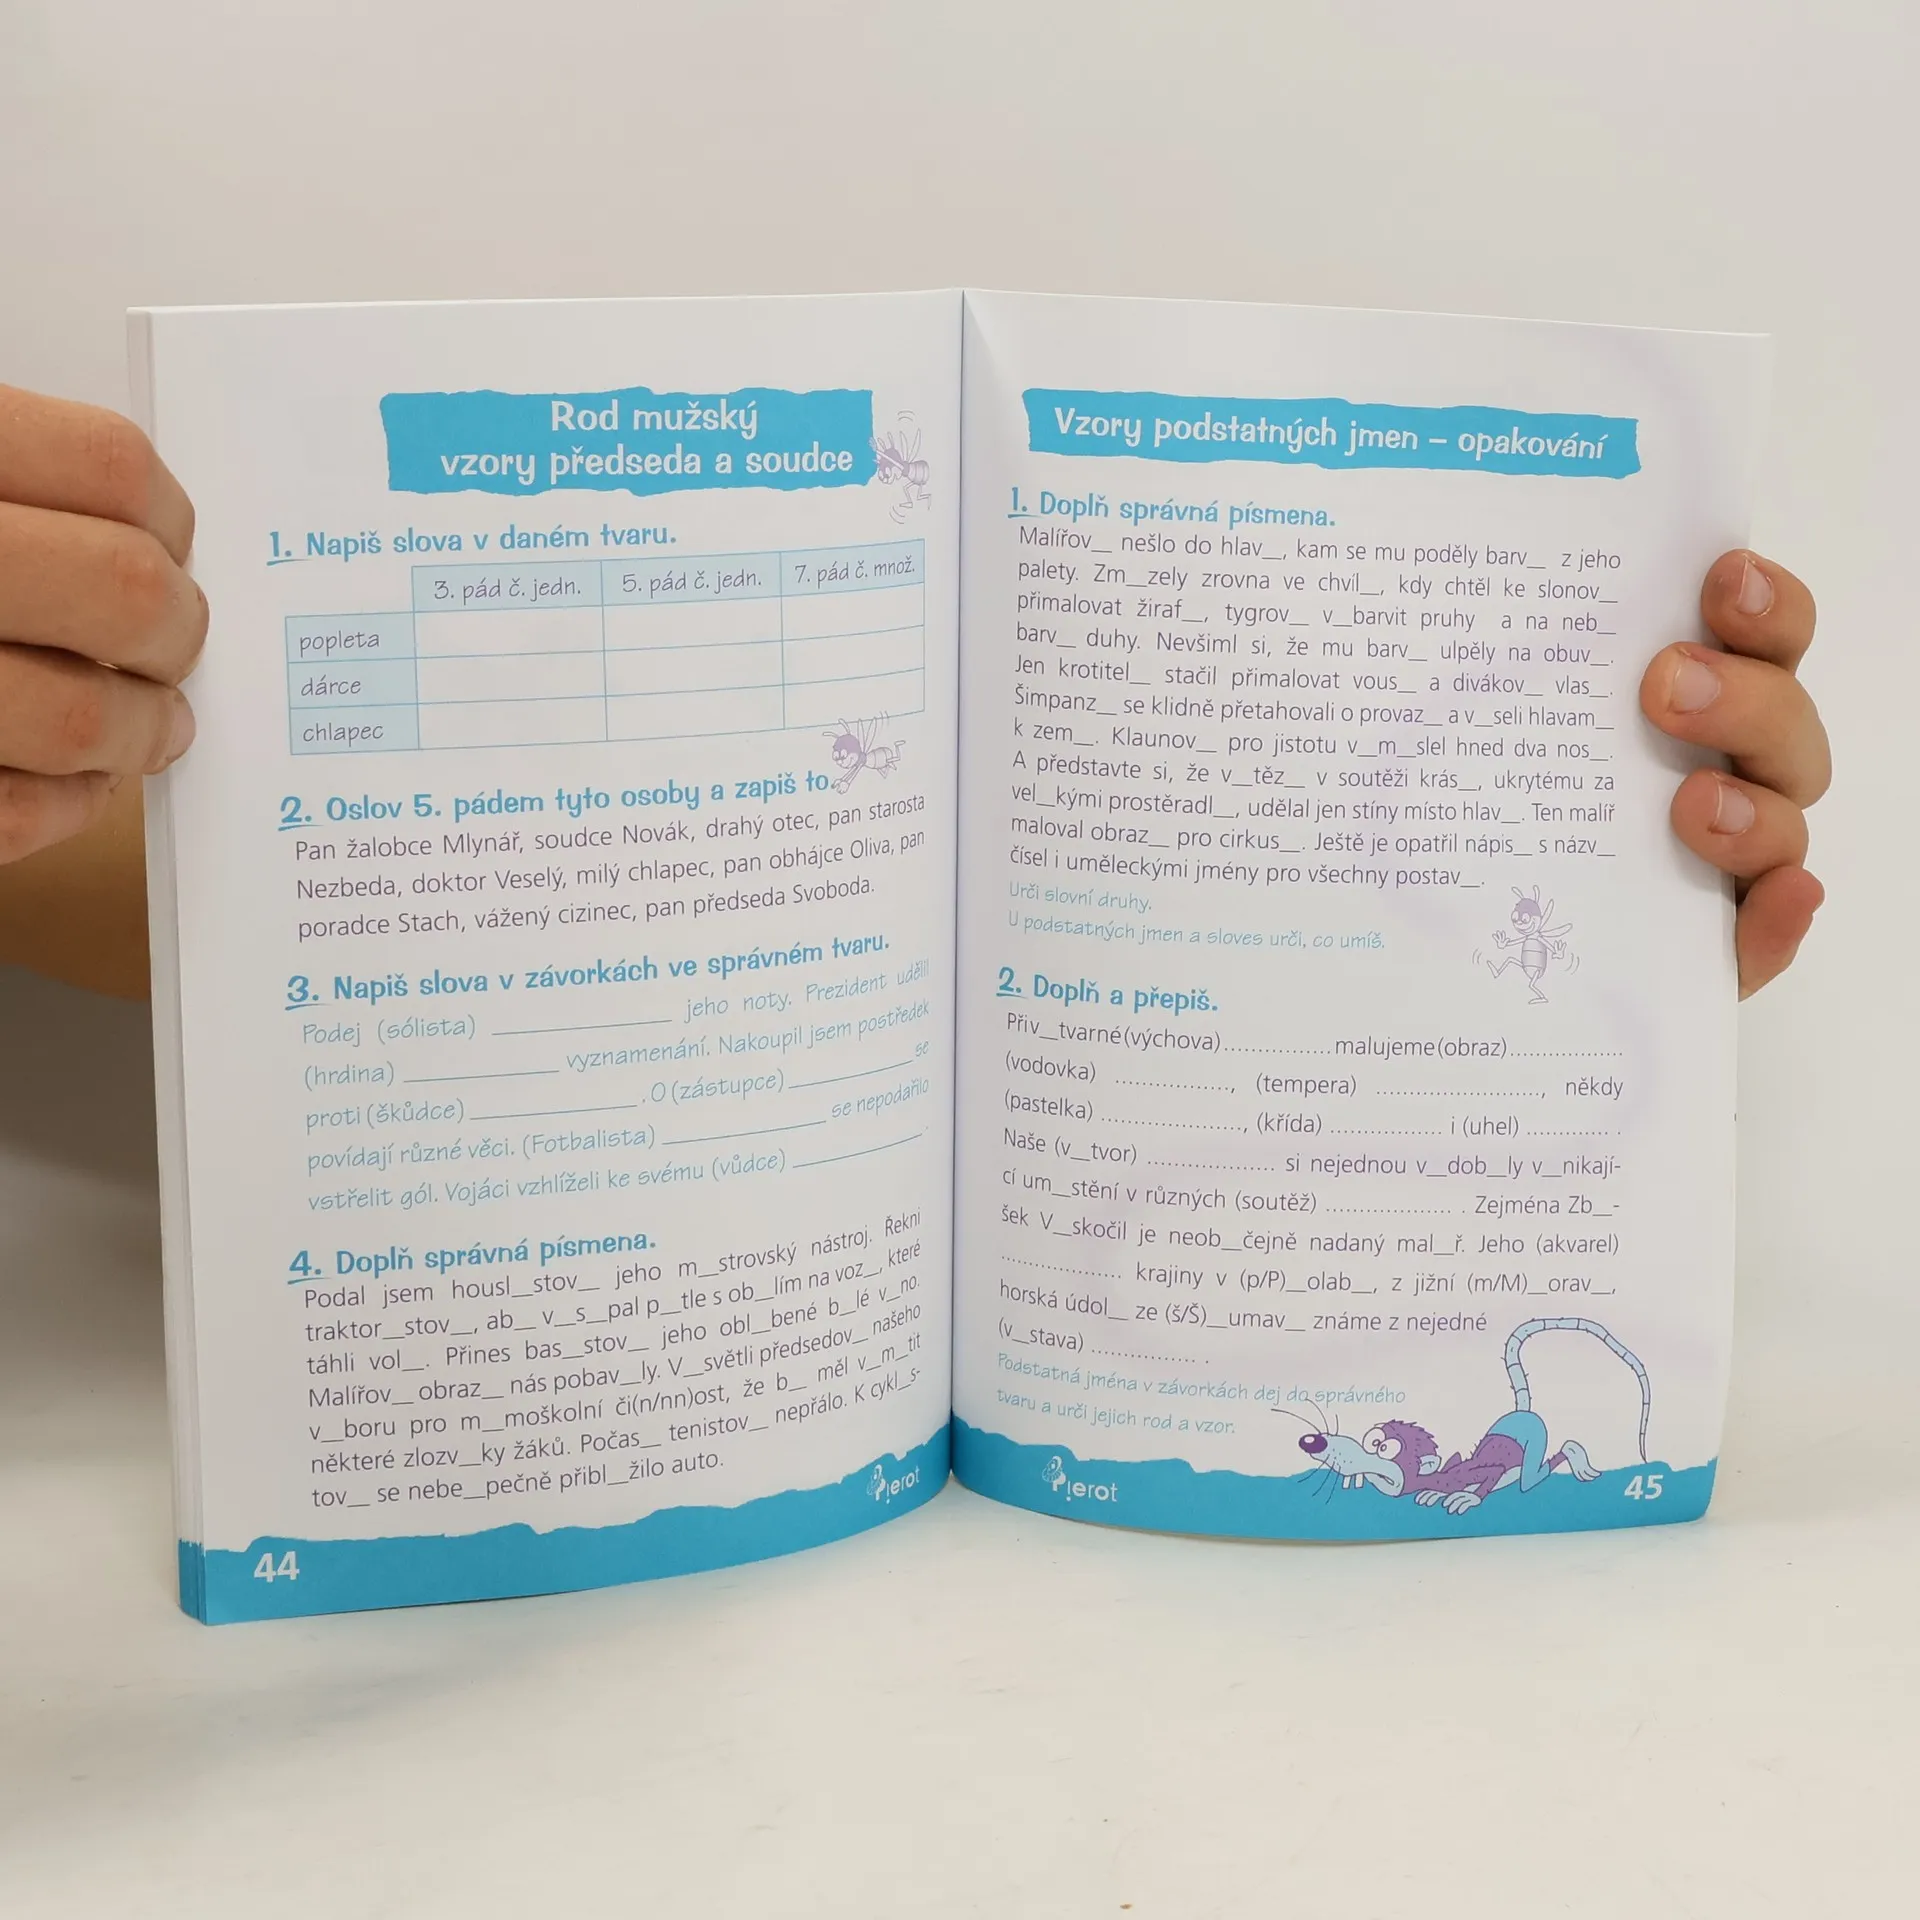 Rod mužský
vzory předseda a soudce
1. Napiš slova v daném tvaru.
3. pád č. jedn. 5. pád č. jedn. 7. pád č. množ.
popleta
dárce
chlapec
2. Oslov 5. pádem tyto osoby a zapiš to.
Pan žalobce Mlynář, soudce Novák, drahý otec, pan starosta
Nezbeda, doktor Veselý, milý chlapec, pan obhájce Oliva, pan
poradce Stach, vážený cizinec, pan předseda Svoboda.
3. Napiš slova v závorkách ve správném tvaru.
Podej (sólista) __________ jeho noty. Prezident udělil
(hrdina) __________ vyznamenání. Nakoupil jsem postředek
proti (škůdce) __________. O (zástupce) __________ se
povídají různé věci. (Fotbalista) __________ se nepodařilo
vstřelit gól. Vojáci vzhlíželi ke svému (vůdce) __________.
4. Doplň správná písmena.
Podal jsem housl__stov__ jeho m__strovský nástroj. Řekni
traktor__stov__, ab__ v__s__pal p__tle s ob__lím na voz__, které
táhli vol__. Přines bas__stov__ jeho obl__bené b__lé v__no.
Malířov__ obraz__ nás pobav__ly. V__světli předsedov__ našeho
v__boru pro m__moškolní či(n/nn)ost, že b__ měl v__m__tit
některé zlozv__ky žáků. Počas__ tenistov__ nepřálo. K cykl__s-
tov__ se nebe__pečně přibl__žilo auto.
Pierot
44
Vzory podstatných jmen – opakování
1. Doplň správná písmena.
Malířov__ nešlo do hlav__, kam se mu poděly barv__ z jeho
palety. Zm__zely zrovna ve chvíl__, kdy chtěl ke slonov__
přimalovat žiraf__, tygrov__ v__barvit pruhy a na neb__
barv__ duhy. Nevšiml si, že mu barv__ ulpěly na obuv__.
Jen krotitel__ stačil přimalovat vous__ a divákov__ vlas__.
Šimpanz__ se klidně přetahovali o provaz__ a v__seli hlavam__
k zem__. Klaunov__ pro jistotu v__m__slel hned dva nos__.
A představte si, že v__těz__ v soutěži krás__, ukrytému za
vel__kými prostěradl__, udělal jen stíny místo hlav__. Ten malíř
maloval obraz__ pro cirkus__. Ještě je opatřil nápis__ s názv__
čísel i uměleckými jmény pro všechny postav__.
Urči slovní druhy.
U podstatných jmen a sloves urči, co umíš.
2. Doplň a přepiš.
Přiv__tvarné (výchova) ............... malujeme (obraz) .................
(vodovka) ................, (tempera) ......................., někdy
(pastelka) ...................., (křída) ................ i (uhel) ............ .
Naše (v__tvor) .................. si nejednou v__dob__ly v__nikají-
cí um__stění v různých (soutěž) .................. . Zejména Zb__-
šek V__skočil je neob__čejně nadaný mal__ř. Jeho (akvarel)
................. krajiny v (p/P)__olab__, z jižní (m/M)__orav__,
horská údol__ ze (š/Š)__umav__ známe z nejedné
(v__stava) ............... .
Podstatná jména v závorkách dej do správného
tvaru a urči jejich rod a vzor.
Pierot
45